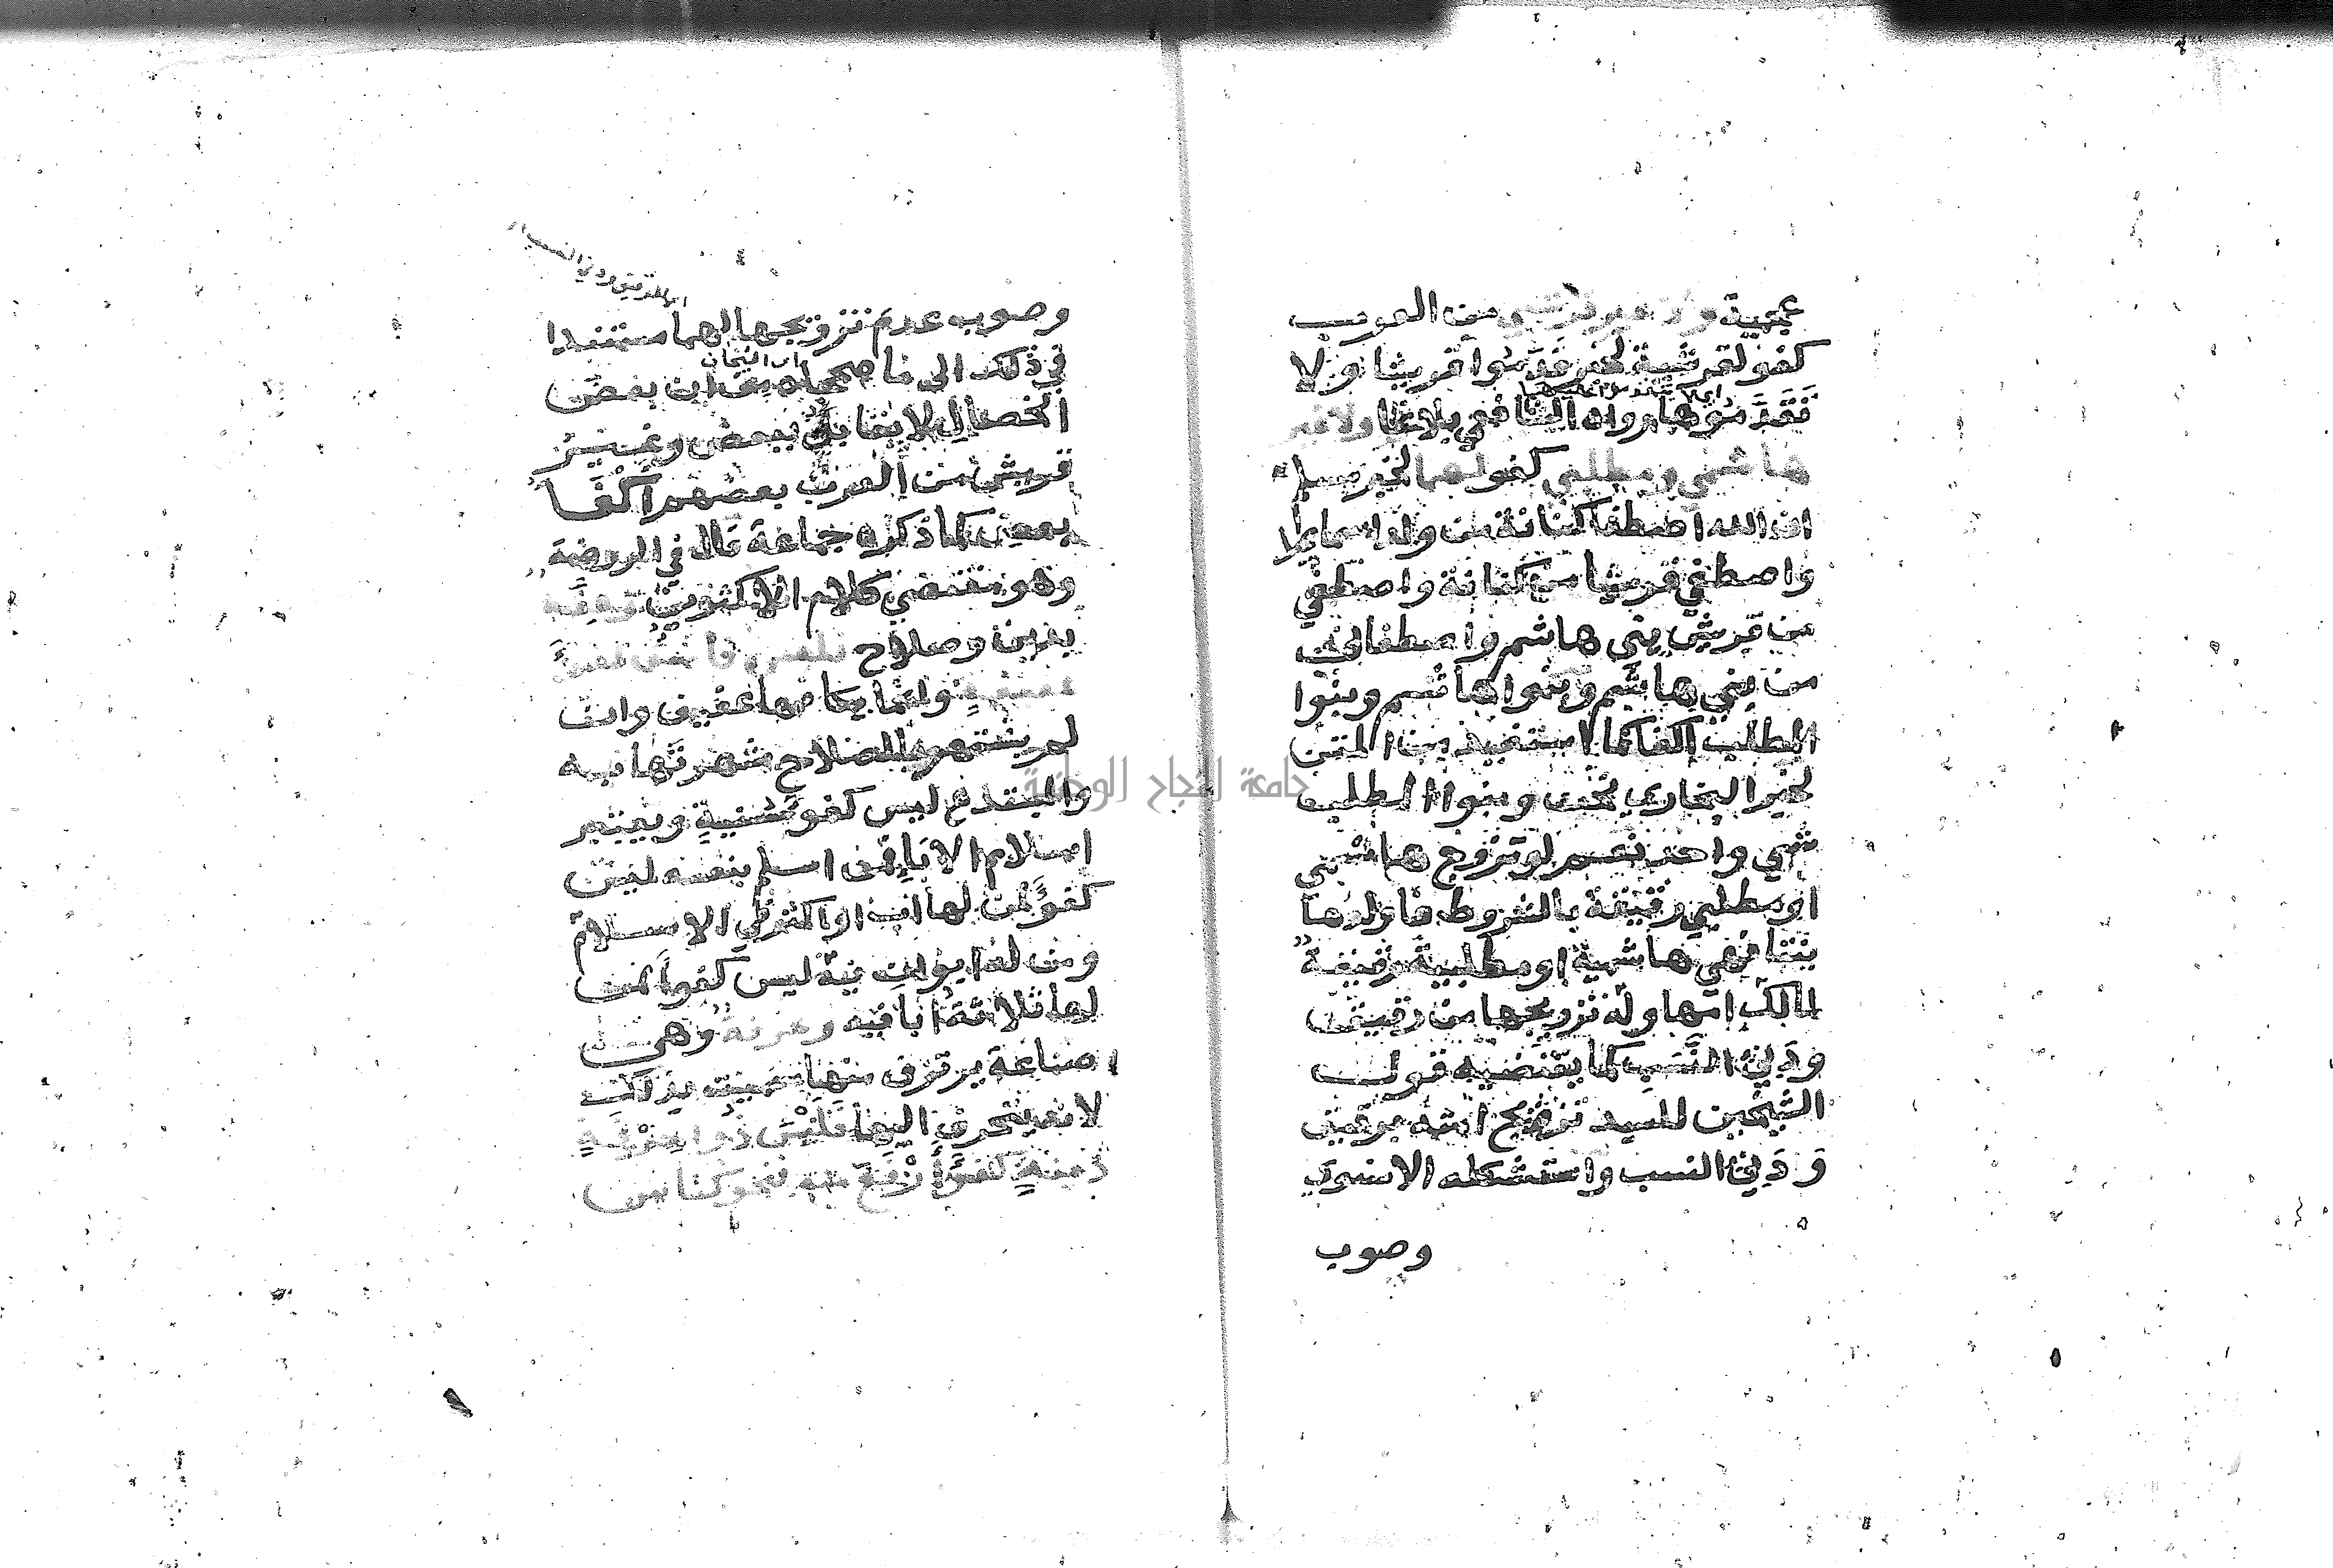 عجمية ولا غير قرشي من العرب
كفو لقرشية لخبر قدموا قريشا ولا
تقدموها رواه الشافعي بلاغا ولا غير
هاشمي ومطلبي كفو لهما لخبر مسلم
ان الله اصطفا كنانة من ولد اسماعيل
واصطفي قريشا من كنانة واصطفي
من قريش بني هاشم واصطفاني
من بني هاشم وبنوا هاشم وبنوا
المطلب اكفا كما استفيد من المتن
لخبر البخاري نحن وبنوا المطلب
شي واحد نعم لو تزوج هاشمي
او مطلبي رقيقة بالشروط فاولدها
بنتا فهي هاشمية او مطلبية رقيقة
لمالك امها وله تزويجها من رقيق
ودني النسب كما يقتضيه قول
الشيخين للسيد تزويج امته برقيق
ودني النسب واستشكله الاسنوي
وصوب
جامعة النجاح الوطنية
وصوب عدم تزويجها لهما مستندا
اي الشيخان
في ذلك الى ما صححاه من ان بعض
الخصال لا يقابل ببعض وغير
قريش من العرب بعضهم اكفا
بعض كما ذكره جماعة قال في الروضة
وهو مقتضي كلام الاكثرين وعفة
بدين وصلاح فليس فاسق كفو
عفيفة وانما يكافيها عفيف وان
لم يشتهر بالصلاح شهرتها فيه
والمبتدع ليس كفو سنية ويعتبر
اسلام الابا فمن اسلم بنفسه ليس
كفوا لمن لها اب او اكثر في الاسلام
ومن له ابوان فيه ليس كفوا لمن
لها ثلاثة ابا فيه وحرفة وهي
صناعة يرتزق منها سميت بذلك
لانه ينحرف اليها فليس ذو حرفة
دنية كفو ارفع منه فنحو كناس